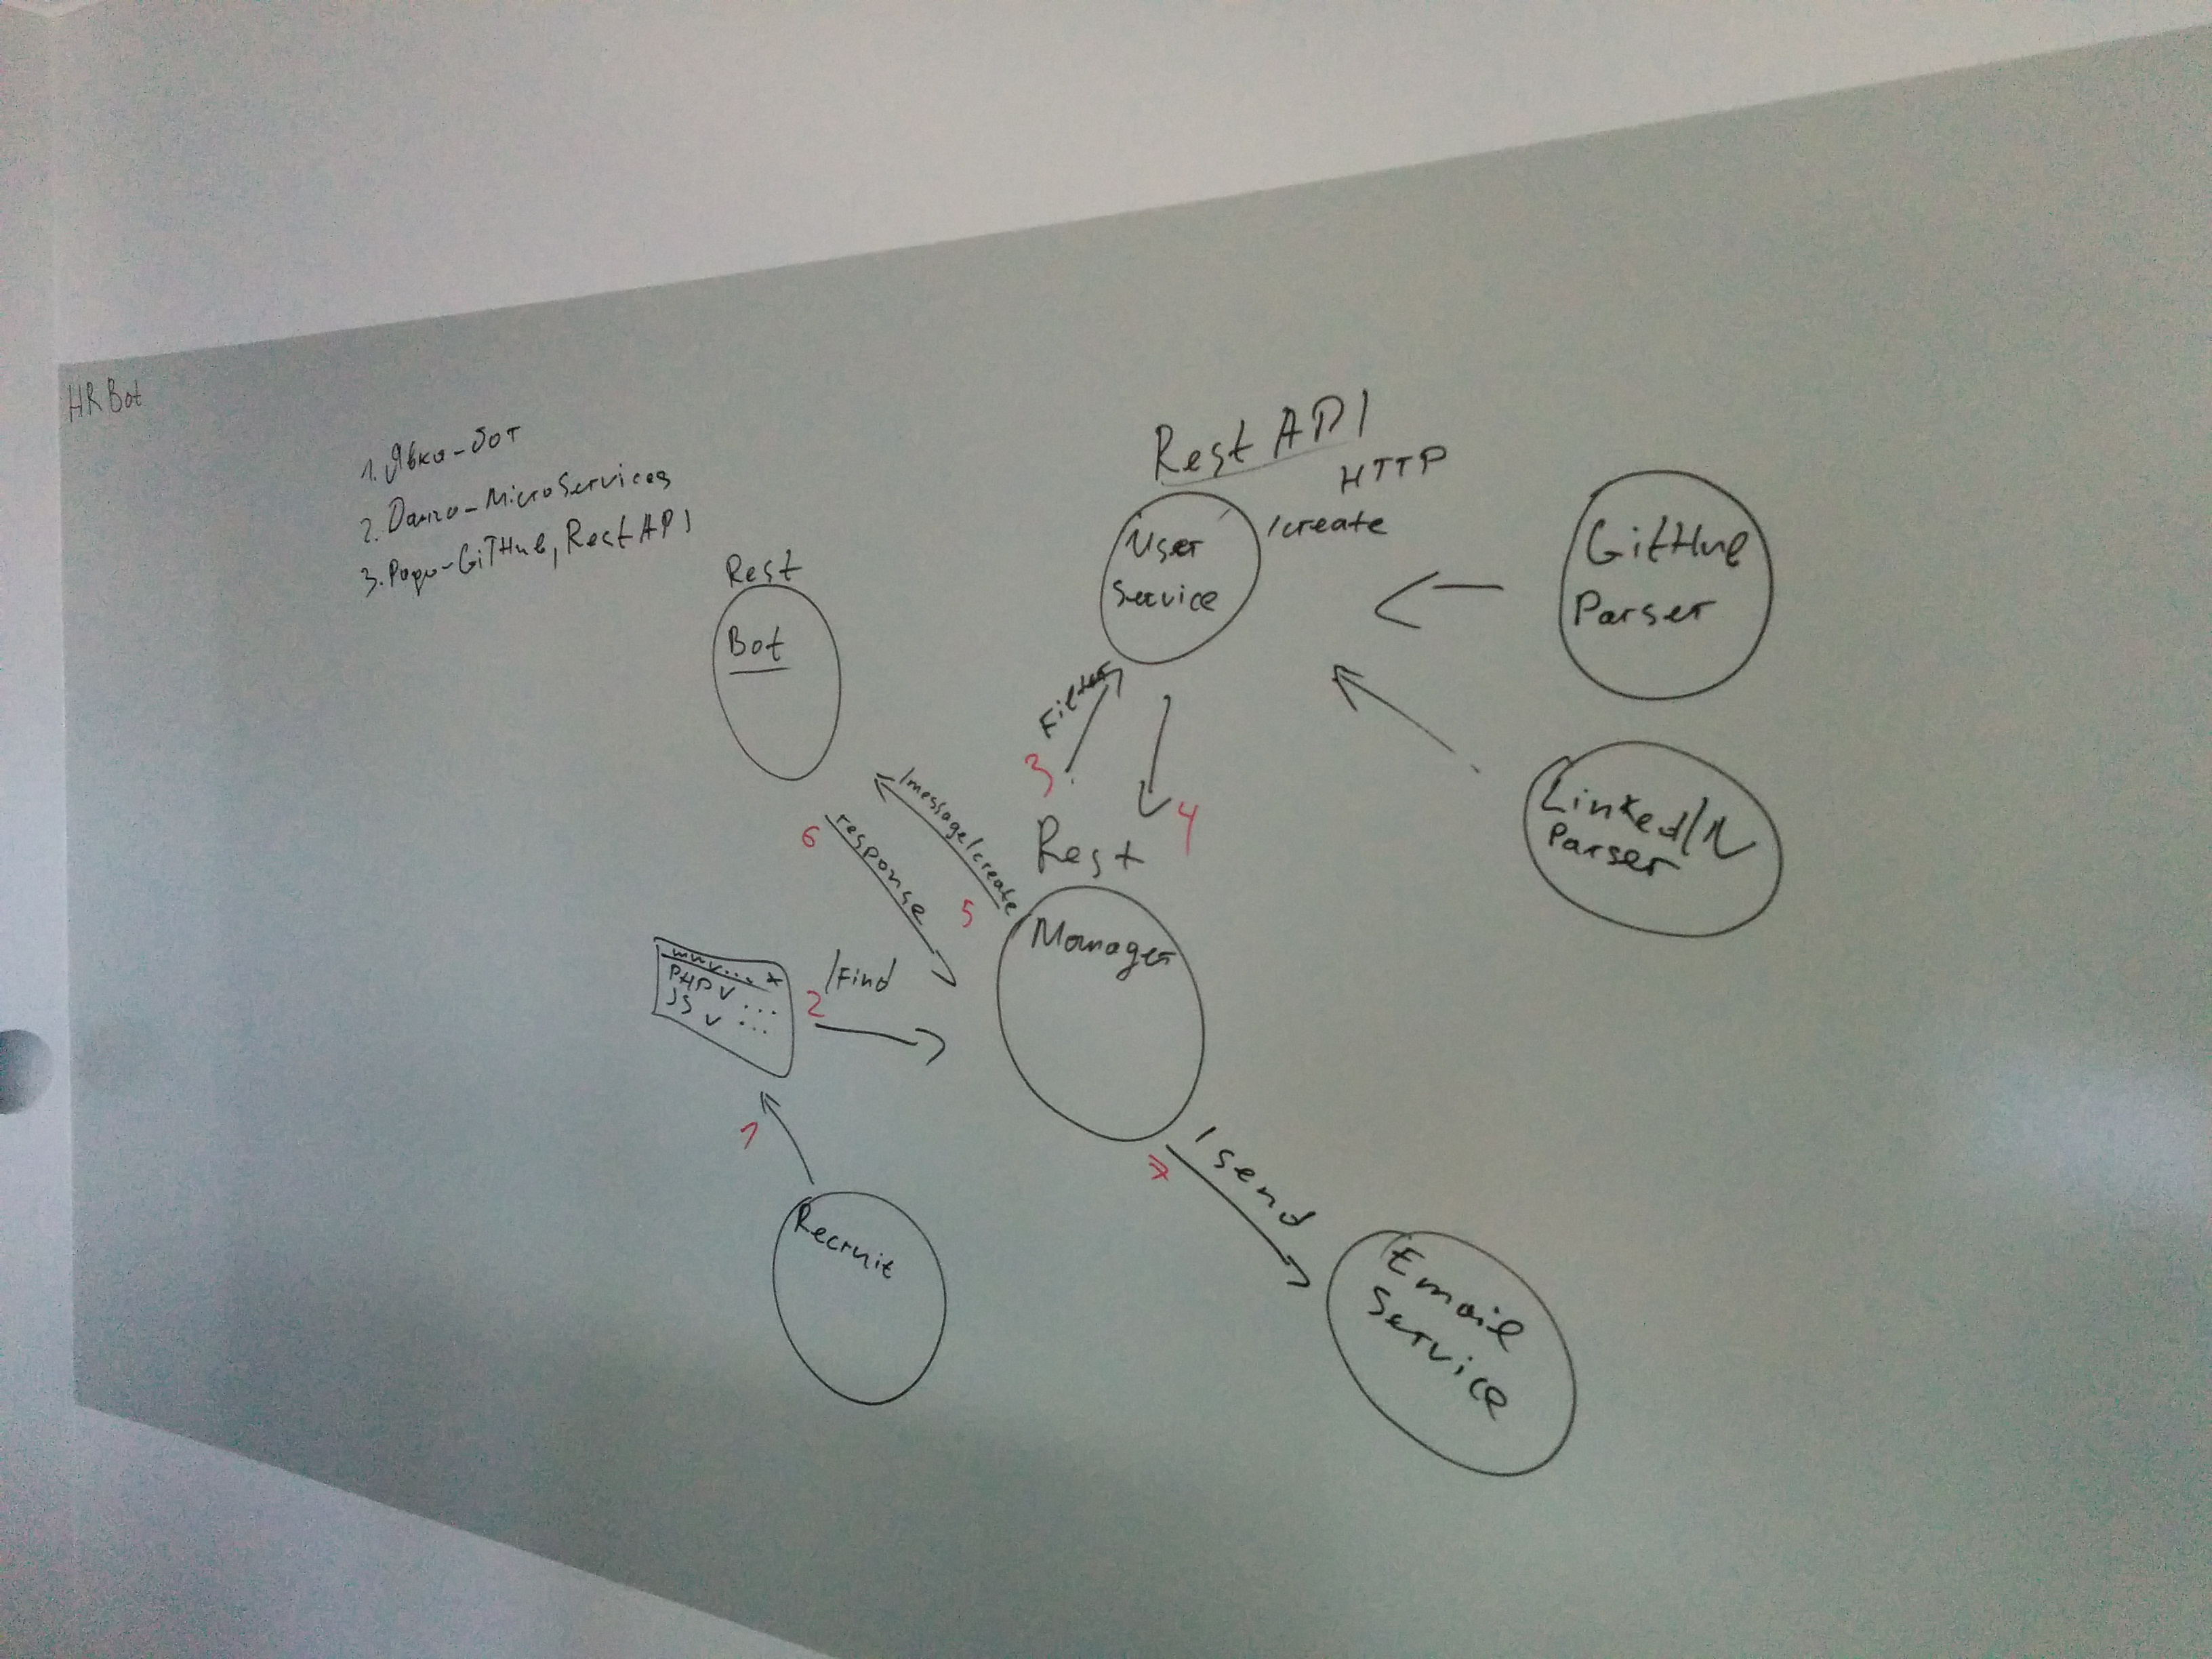 HR Bot
1. Явка - бот
2. Данчо - MicroServices
3. Радо - GitHub, Rest API
Rest API
HTTP
/create
User
Service
GitHub
Parser
Linked/N
Parser
Rest
Bot
Filter
3
4
/message/create
5
6
response
Rest
Manager
www... x
PHP v ...
JS v ...
2
/Find
1
Recruit
7
/send
Email
Service